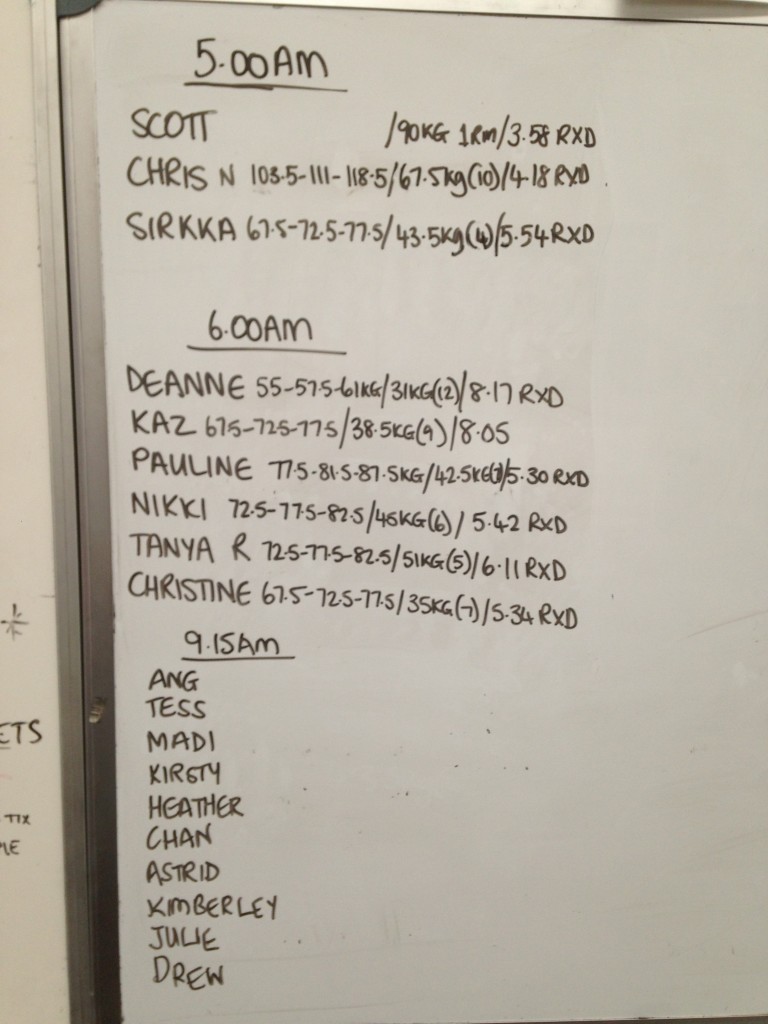 5.00AM
SCOTT /90KG 1RM/3.58 RXD
CHRIS N 103.5-111-118.5/67.5kg(10)/4.18 RXD
SIRKKA 67.5-72.5-77.5/43.5kg(4)/5.54 RXD
6.00AM
DEANNE 55-57.5-61KG/31KG(12)/8.17 RXD
KAZ 67.5-72.5-77.5/38.5KG(9)/8.05
PAULINE 77.5-81.5-87.5KG/42.5KG(7)/5.30 RXD
NIKKI 72.5-77.5-82.5/45KG(6)/5.42 RXD
TANYA R 72.5-77.5-82.5/51KG(5)/6.11 RXD
CHRISTINE 67.5-72.5-77.5/35KG(7)/5.34 RXD
9.15AM
ANG
TESS
MADI
KIRSTY
HEATHER
CHAN
ASTRID
KIMBERLEY
JULIE
DREW
ETS
TIX